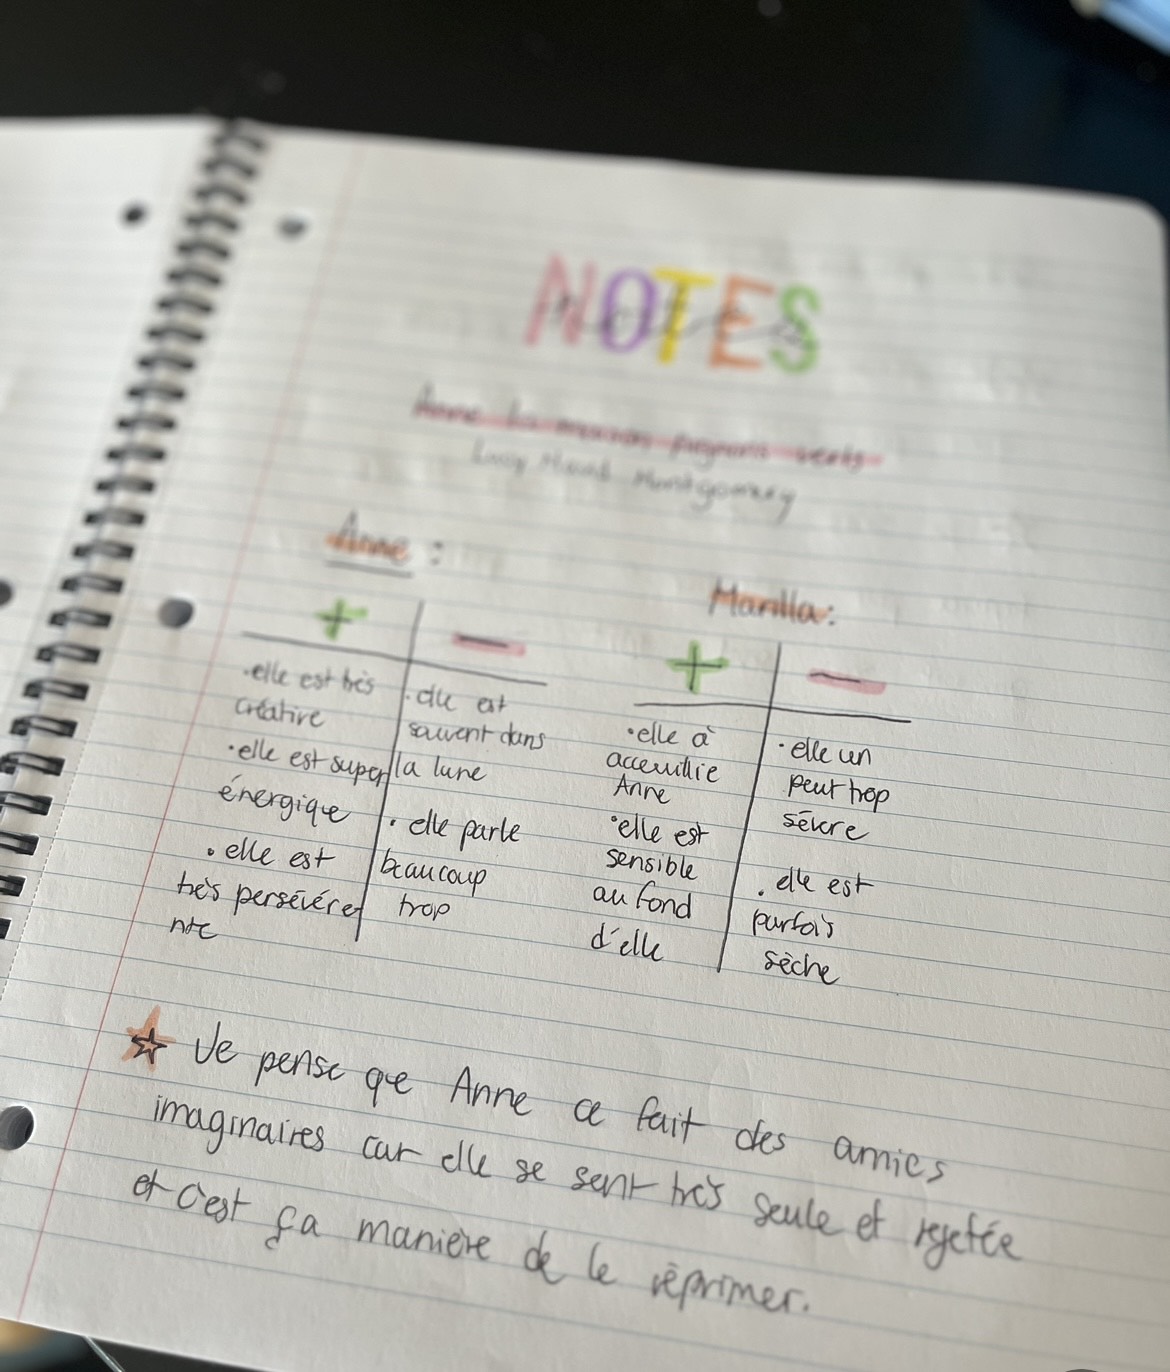 NOTES
Anne La maison pignons verts
Lucy Maud Montgomery
Anne :
+ —
.elle est très
créative
.elle est super
énergique
. elle est
très persévére
nte
. elle est
souvent dans
la lune
. elle parle
beaucoup
trop
Marilla:
+ —
.elle à
acceuillie
Anne
.elle est
sensible
au fond
d'elle
.elle un
peut trop
sévère
. elle est
parfois
sèche
☆ Je pense que Anne ce fait des amies
imaginaires car elle se sent très seule et rejetée
et c'est ça manière de le réprimer.